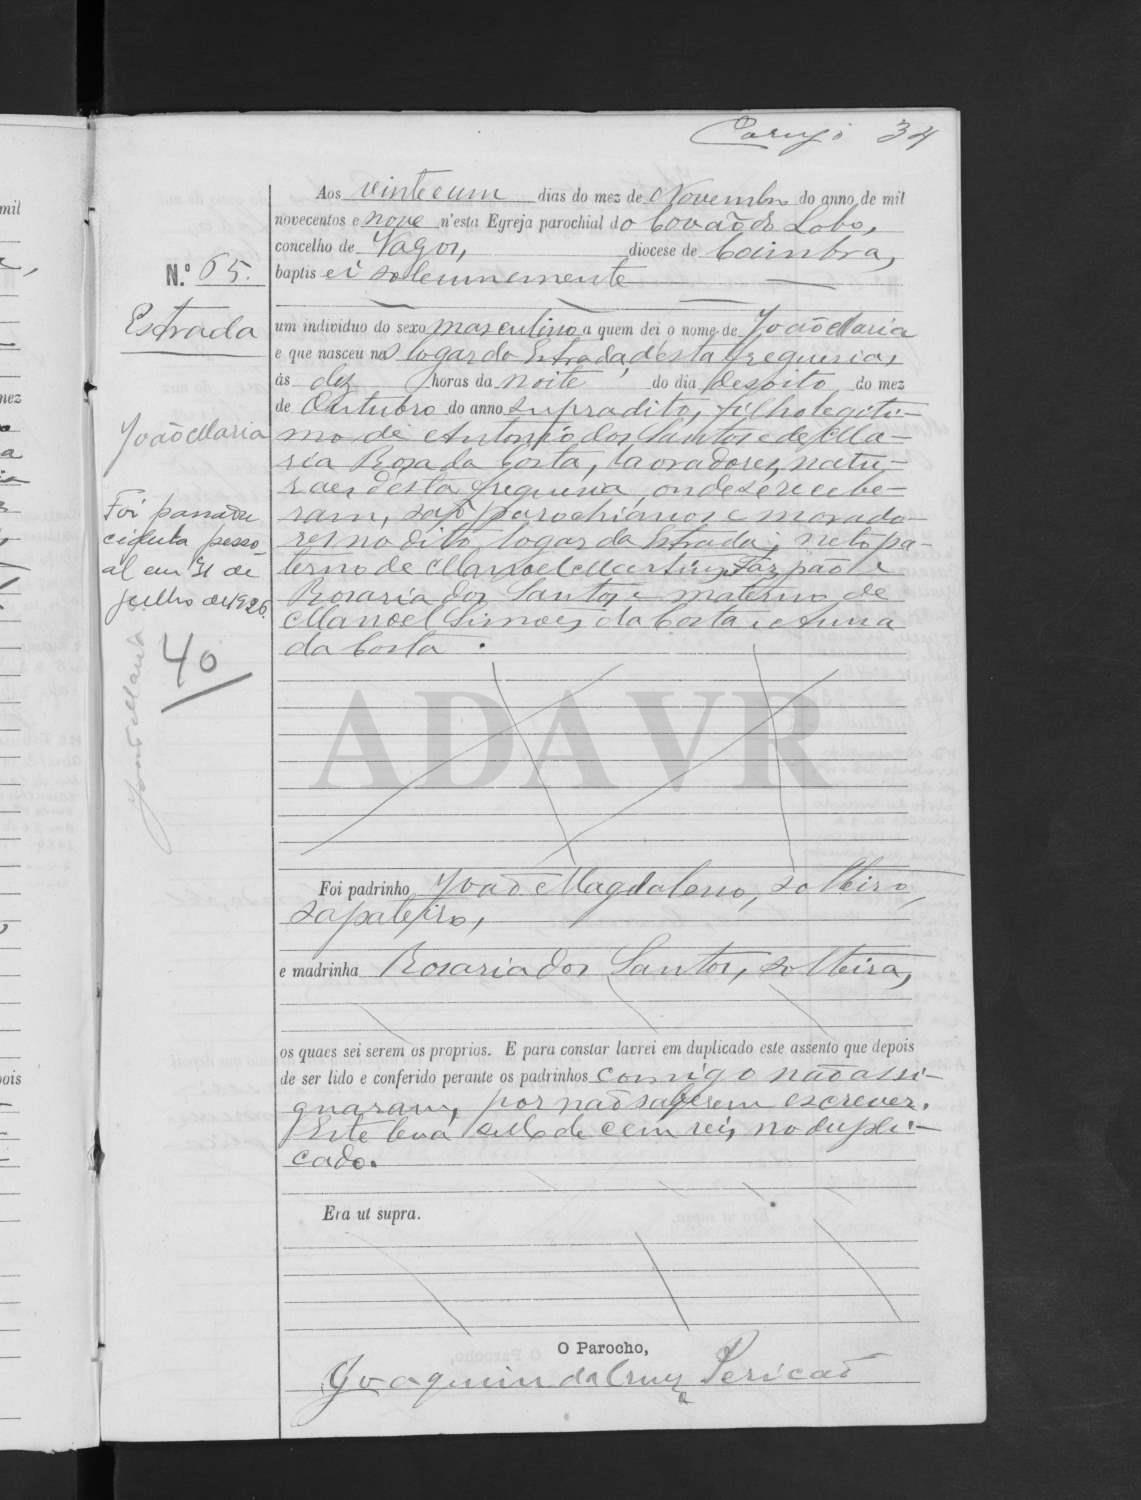 34
Aos vinte e um dias do mez de Novembro do anno de mil
novecentos e nove n'esta Egreja parochial do Covão do Lobo,
concelho de Vagos, diocese de Coimbra,
N.º 65. baptisei solemnemente
Estrada
um individuo do sexo masculino a quem dei o nome de João Maria
e que nasceu no logar da Estrada, d'esta freguesia,
ás dez horas da noite do dia desoito do mez
de Outubro do anno supradito, filho legiti-
João Maria
mo de Antonio dos Santos e de Ma-
ria Rosa da Costa, lavradores, natu-
raes desta freguesia onde se recebe-
ram, são parochianos e morado-
res no dito logar da Estrada; neto pa-
terno de Manoel Martins Faz pão e
Rosaria dos Santos e materno de
Manoel Simões da Costa e Anna
da Costa.
Foi passada
cedula pesso-
al em 31 de
Julho de 1926.
40
João Maria
ADAVR
Foi padrinho João Magdaleno, solteiro,
sapateiro,
e madrinha Rosaria dos Santos, solteira,
os quaes sei serem os proprios. E para constar lavrei em duplicado este assento que depois
de ser lido e conferido perante os padrinhos comigo não assi-
gnaram, por não saberem escrever.
Este leva sello de cem reis no dupli-
cado.
Era ut supra.
O Parocho,
Joaquim da Cruz Pericão